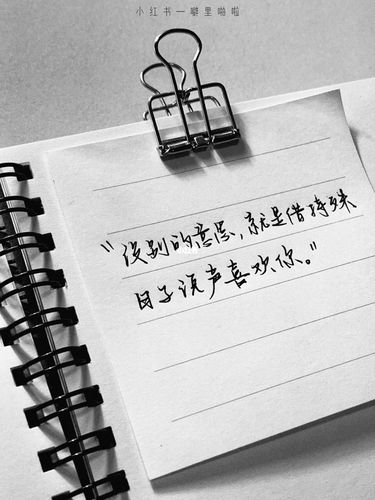 小红书一噼里啪啦
“没别的意思,就是借特殊
日子说声喜欢你。”